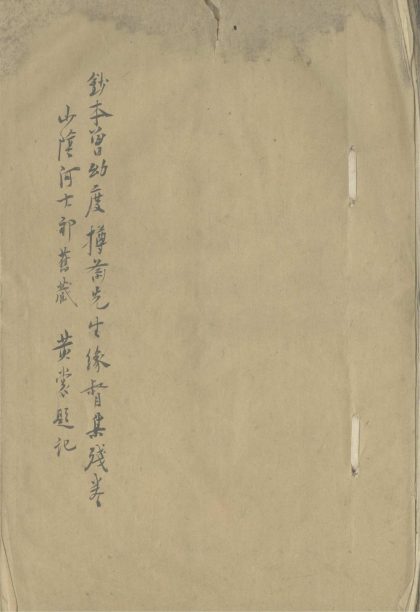 鈔本曾幼度撙斎先生緣督集殘卷
山陰何士祁舊藏 黃裳題記